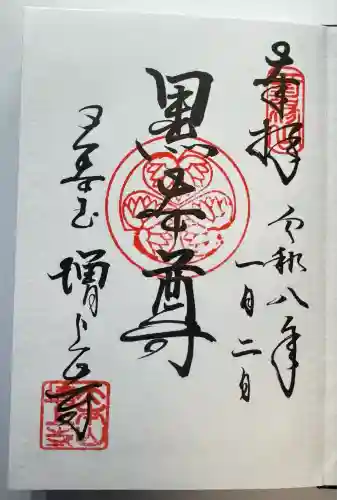 奉拝
令和八年
一月二日
黒本尊
大本山
増上寺